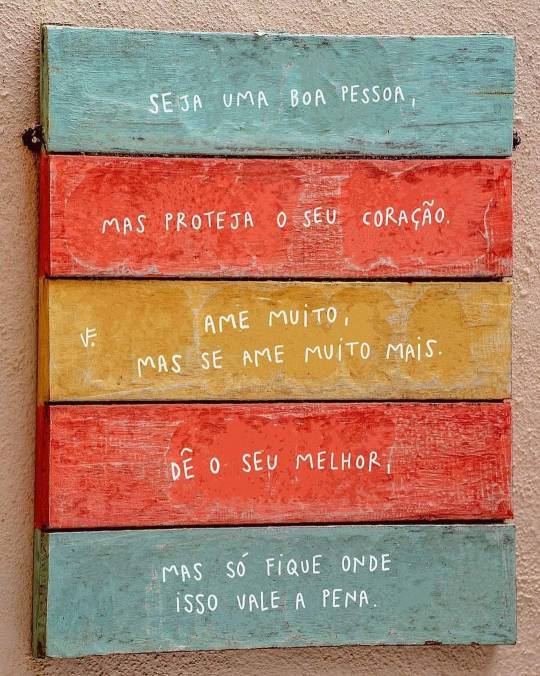 SEJA UMA BOA PESSOA,
MAS PROTEJA O SEU CORAÇÃO.
AME MUITO,
VF.
MAS SE AME MUITO MAIS.
DÊ O SEU MELHOR,
MAS SÓ FIQUE ONDE
ISSO VALE A PENA.